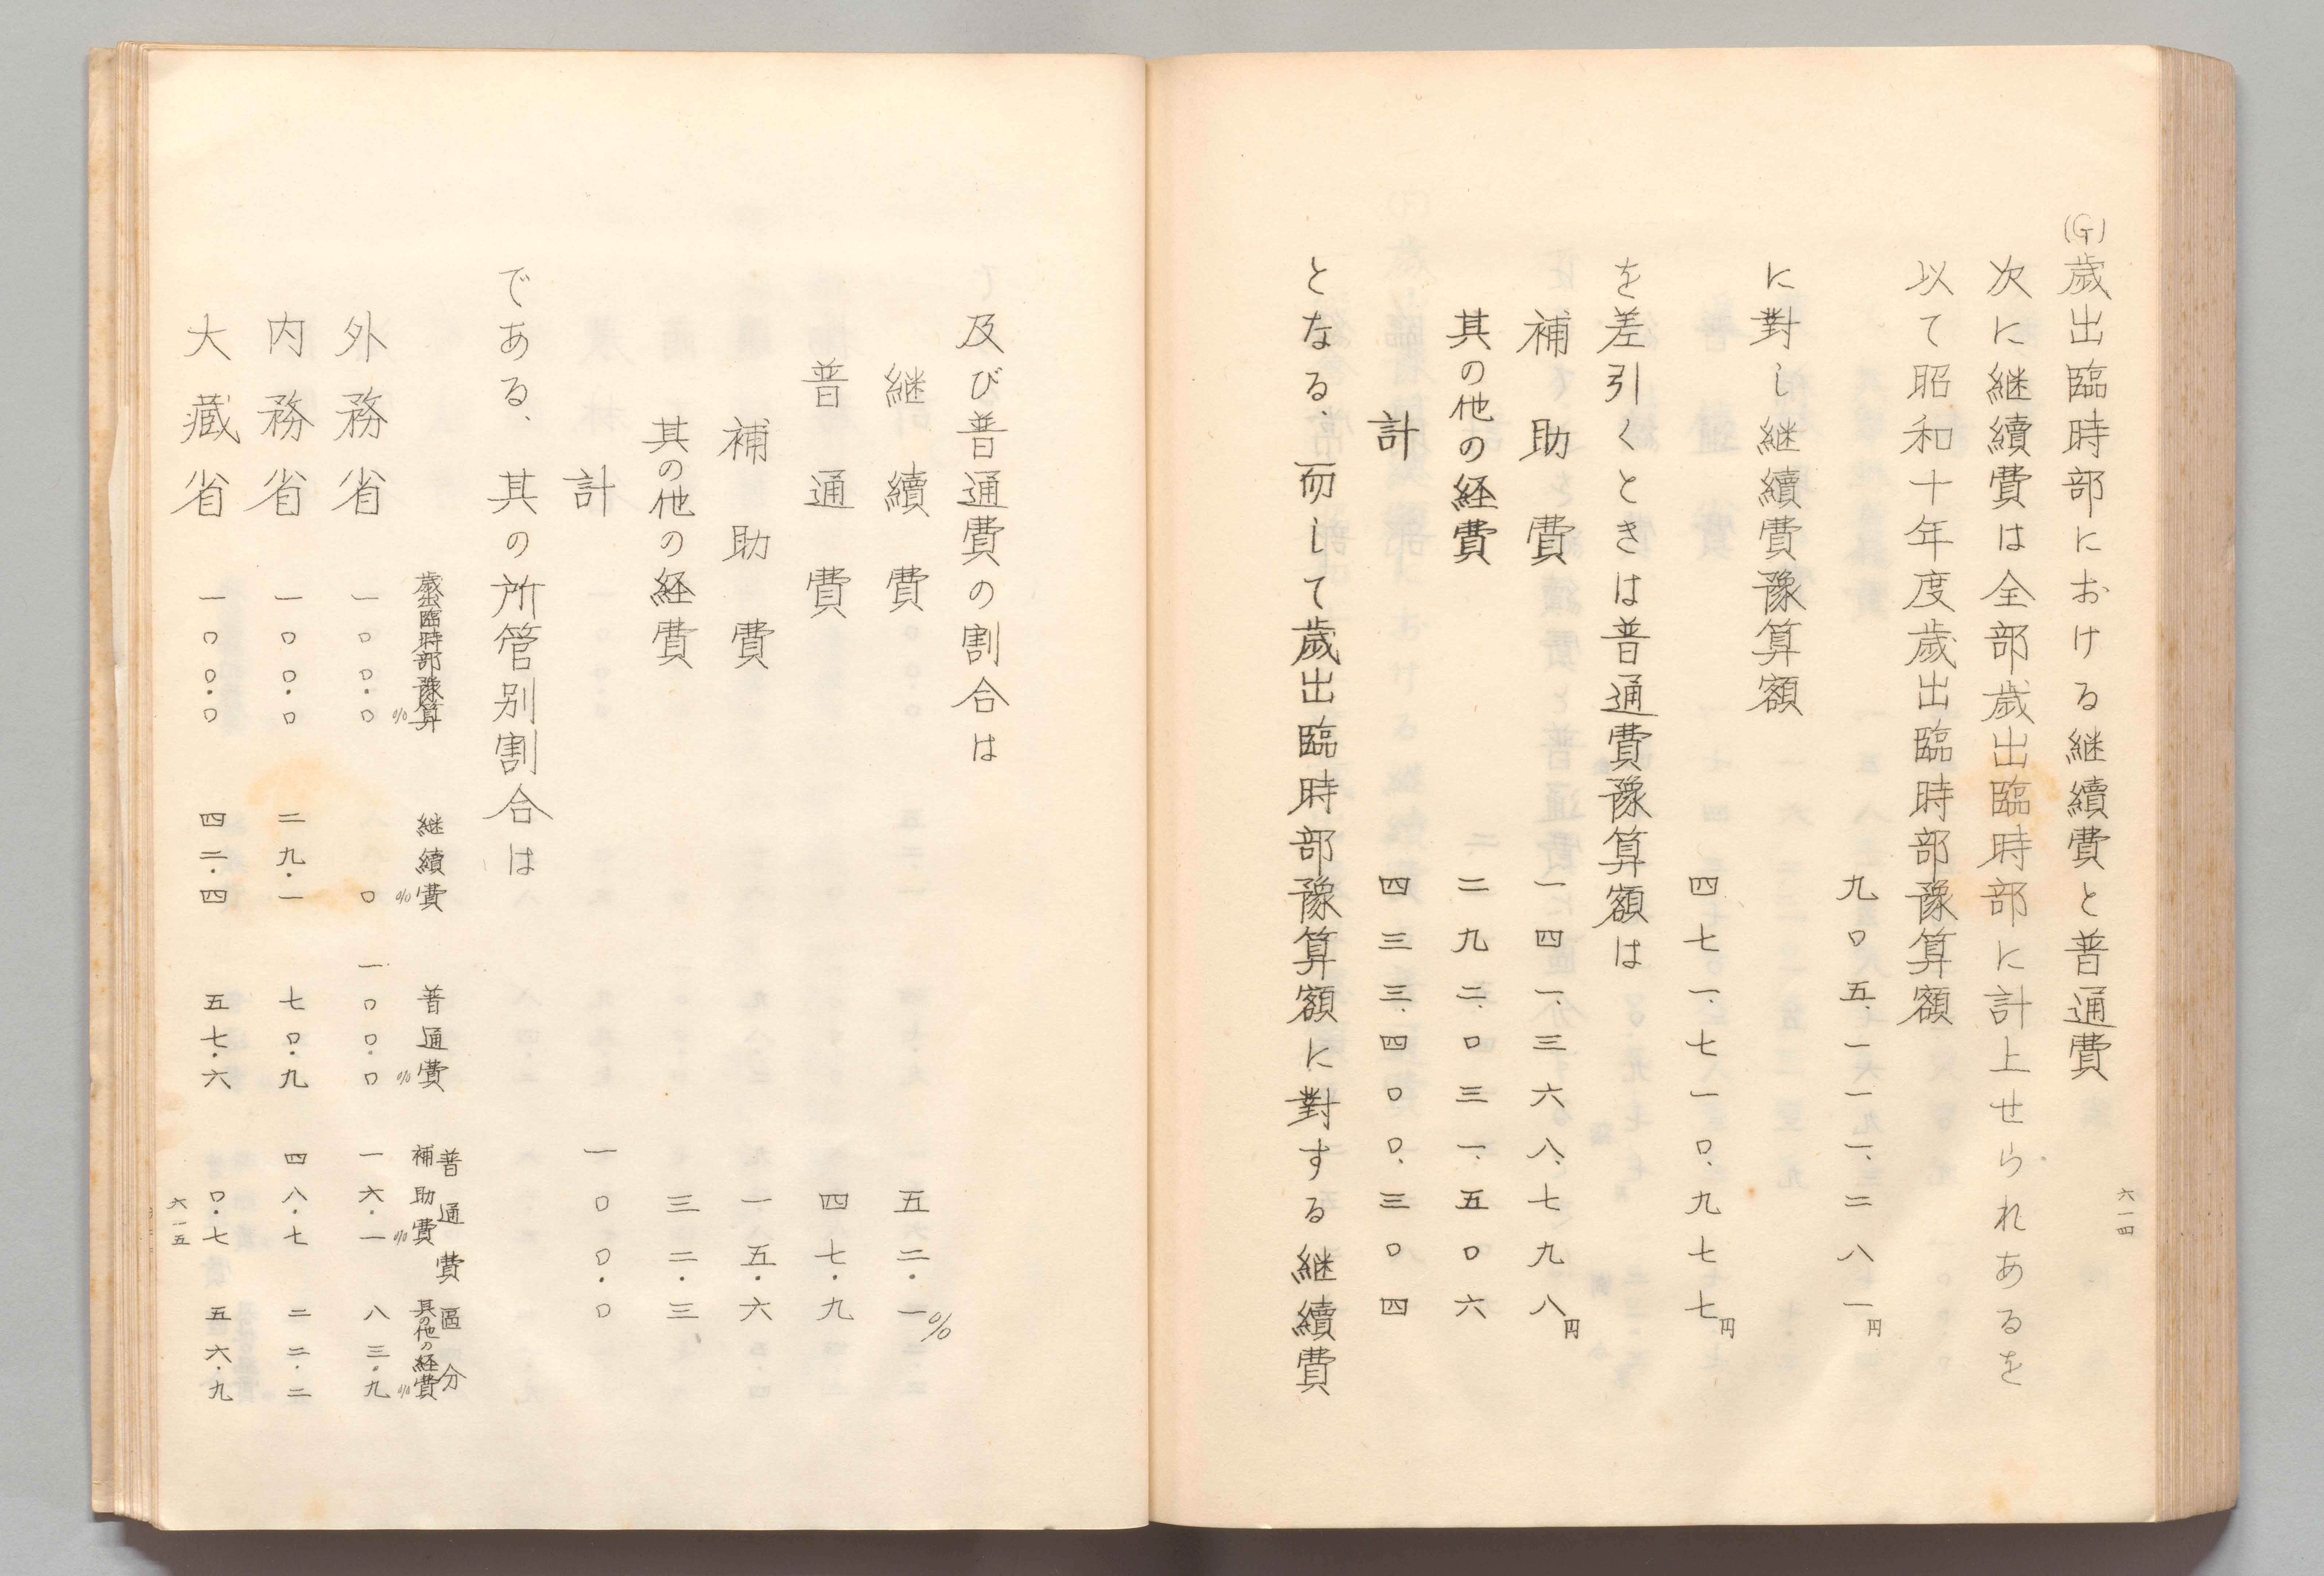 (G)歳出臨時部における継續費と普通費
次に継續費は全部歳出臨時部に計上せられあるを
以て昭和十年度歳出臨時部豫算額
九〇五、一一一、二八一円
に對し継續費豫算額
四七一、七一〇、九七七円
を差引くときは普通費豫算額は
補助費 一四一、三六八、七九八円
其の他の経費 二九二、〇三一、五〇六
計 四三三、四〇〇、三〇四
となる、而して歳出臨時部豫算額に對する継續費
六一四
及び普通費の割合は
継續費 五二・一%
普通費 四七・九
補助費 一五・六
其の他の経費 三二・三
計 一〇〇・〇
である、其の所管別割合は
普通費區分
歳出臨時部豫算% 継續費% 普通費% 補助費% 其の他の経費%
外務省 一〇〇・〇 〇 一〇〇・〇 一六・一 八三・九
内務省 一〇〇・〇 二九・一 七〇・九 四八・七 二二・二
大藏省 一〇〇・〇 四二・四 五七・六 〇・七 五六・九
六一五